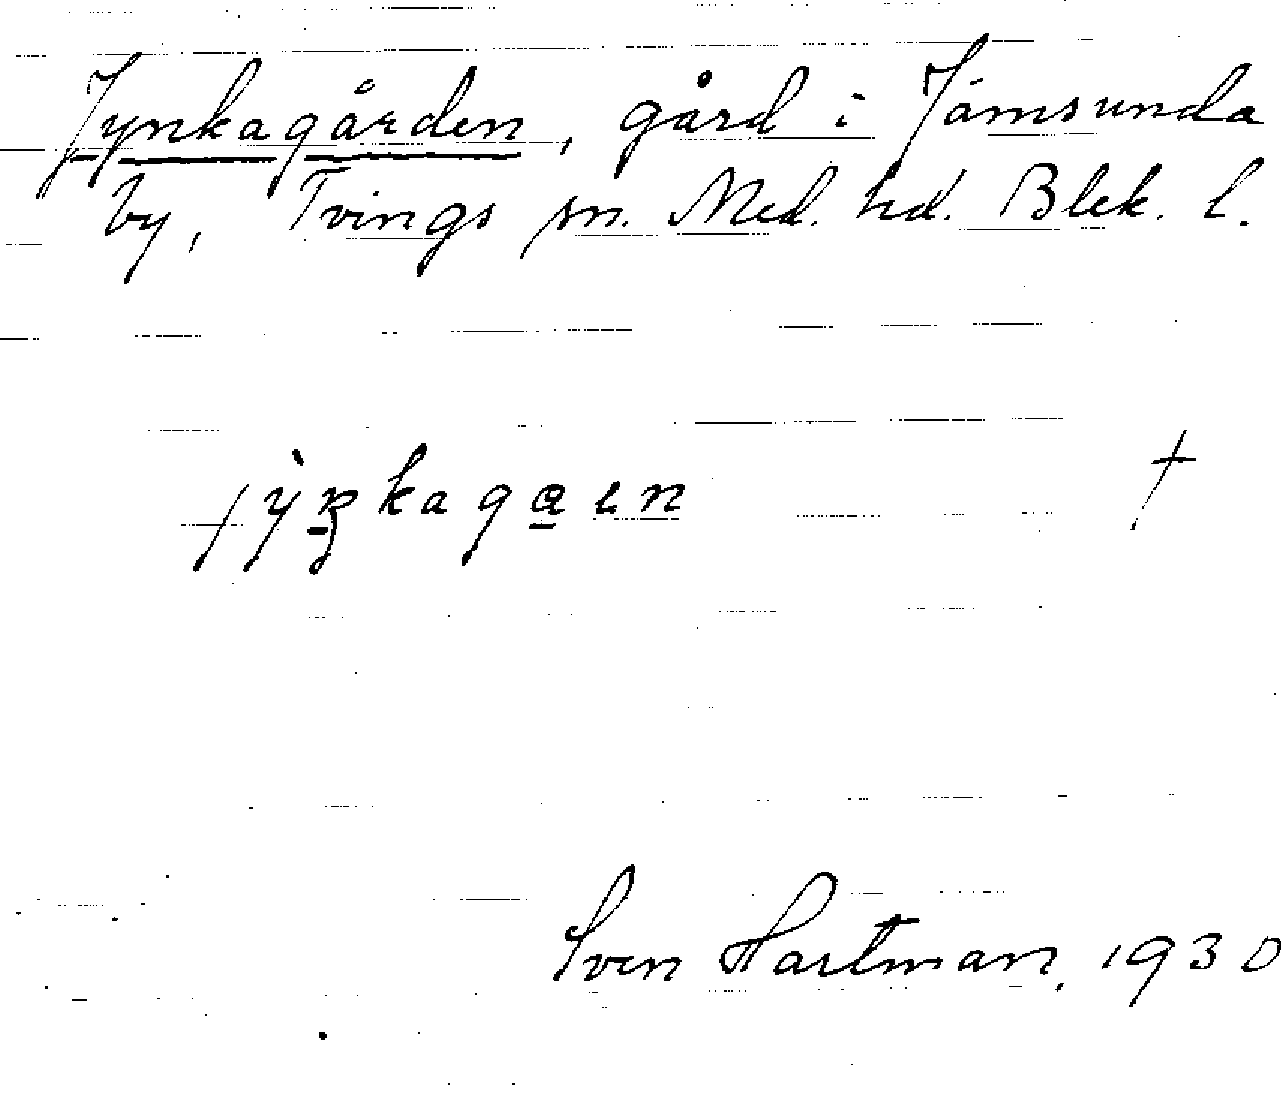 Jynkagården, gård i Jämsunda
by, Tvings sn. Med. hd. Blek. l.
†
Sven Hartman, 1930